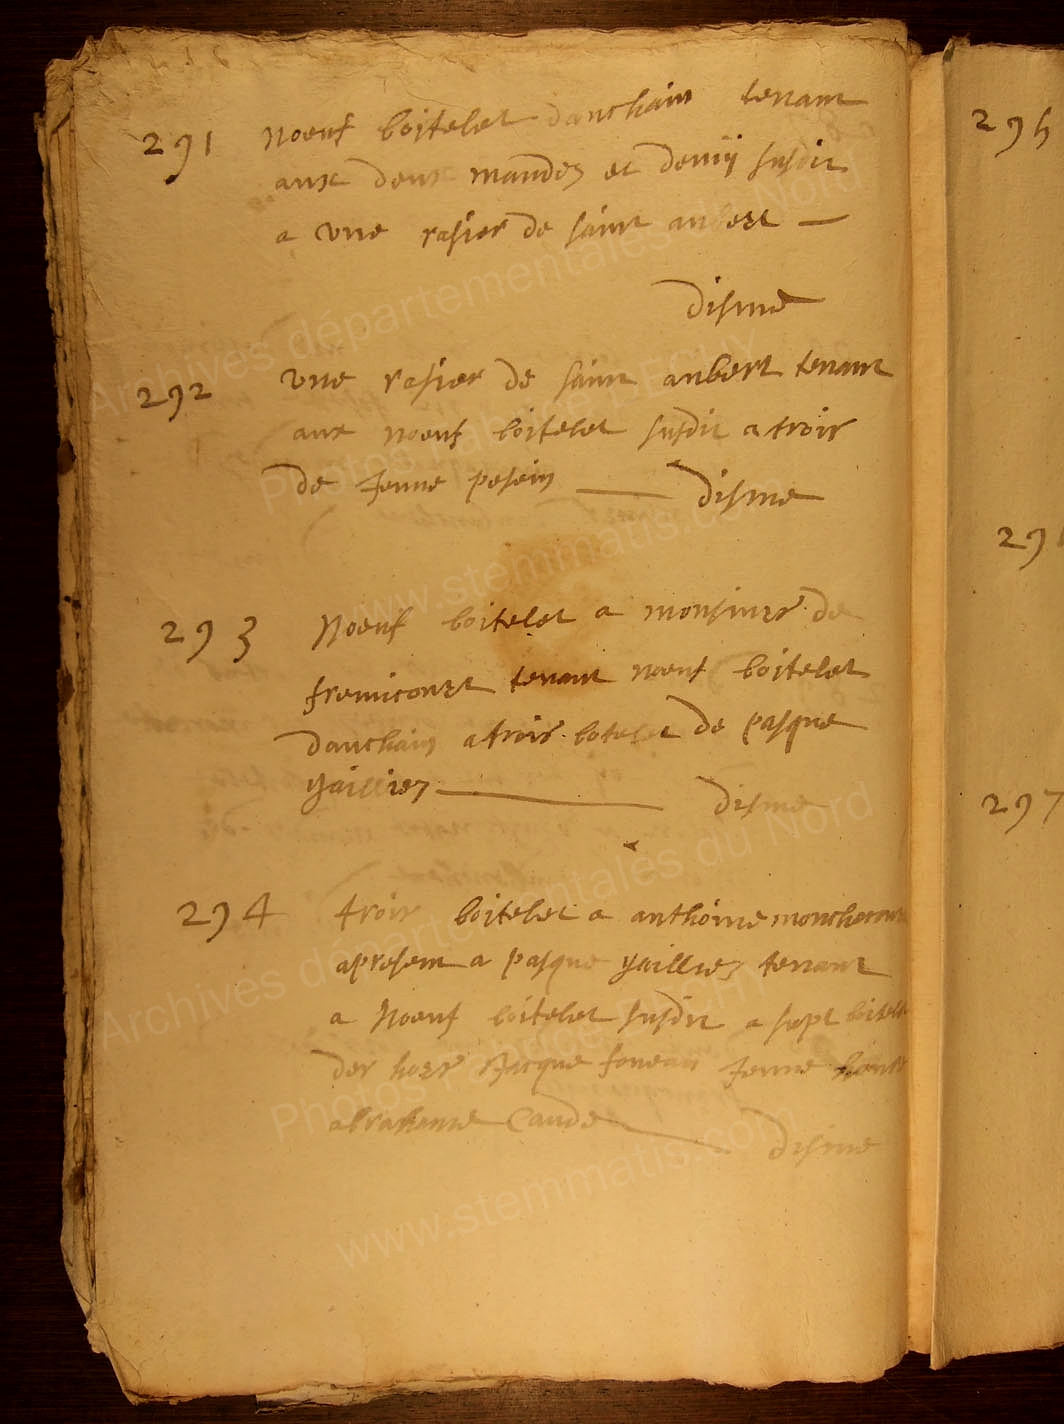 291 Noeuf boitelet danchain tenant
aux deux mandez et demÿ susdit
a une rasier de saint aubert
disme
292 une rasier de saint aubert tenant
aux noeuf boitelet susdit a trois
de Jenne pesein disme
293 Noeuf boitelet a monsiuer de
fremicourt tenant noeuf boitelet
danchain a trois botelet de pasque
yaillier disme
294 trois boitelet a anthoine
apresent a pasque yaillier tenant
a Noeuf boitelet susdit a sept
des hoir Jacque foueau Jenne
abrahame Caude disme
295
297
Archives départementales du Nord
www.stemmatis.com
Archives départementales du Nord
www.stemmatis.com